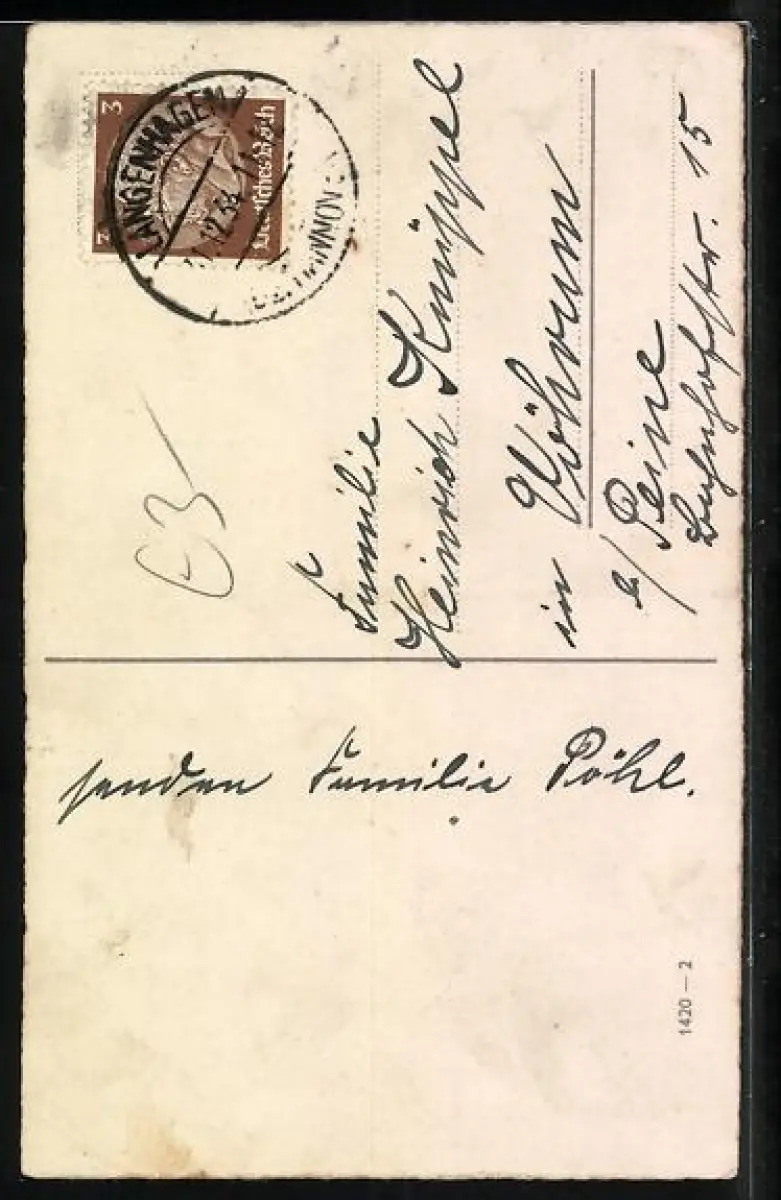 3
3
Deutsches Reich
LANGENHAGEN
12.34
HANNOVER
Familie
Heinrich Knüppel
in Vöhrum
b/ Peine
Bahnhofstr. 15
senden Familie Pöhl.
1420 — 2